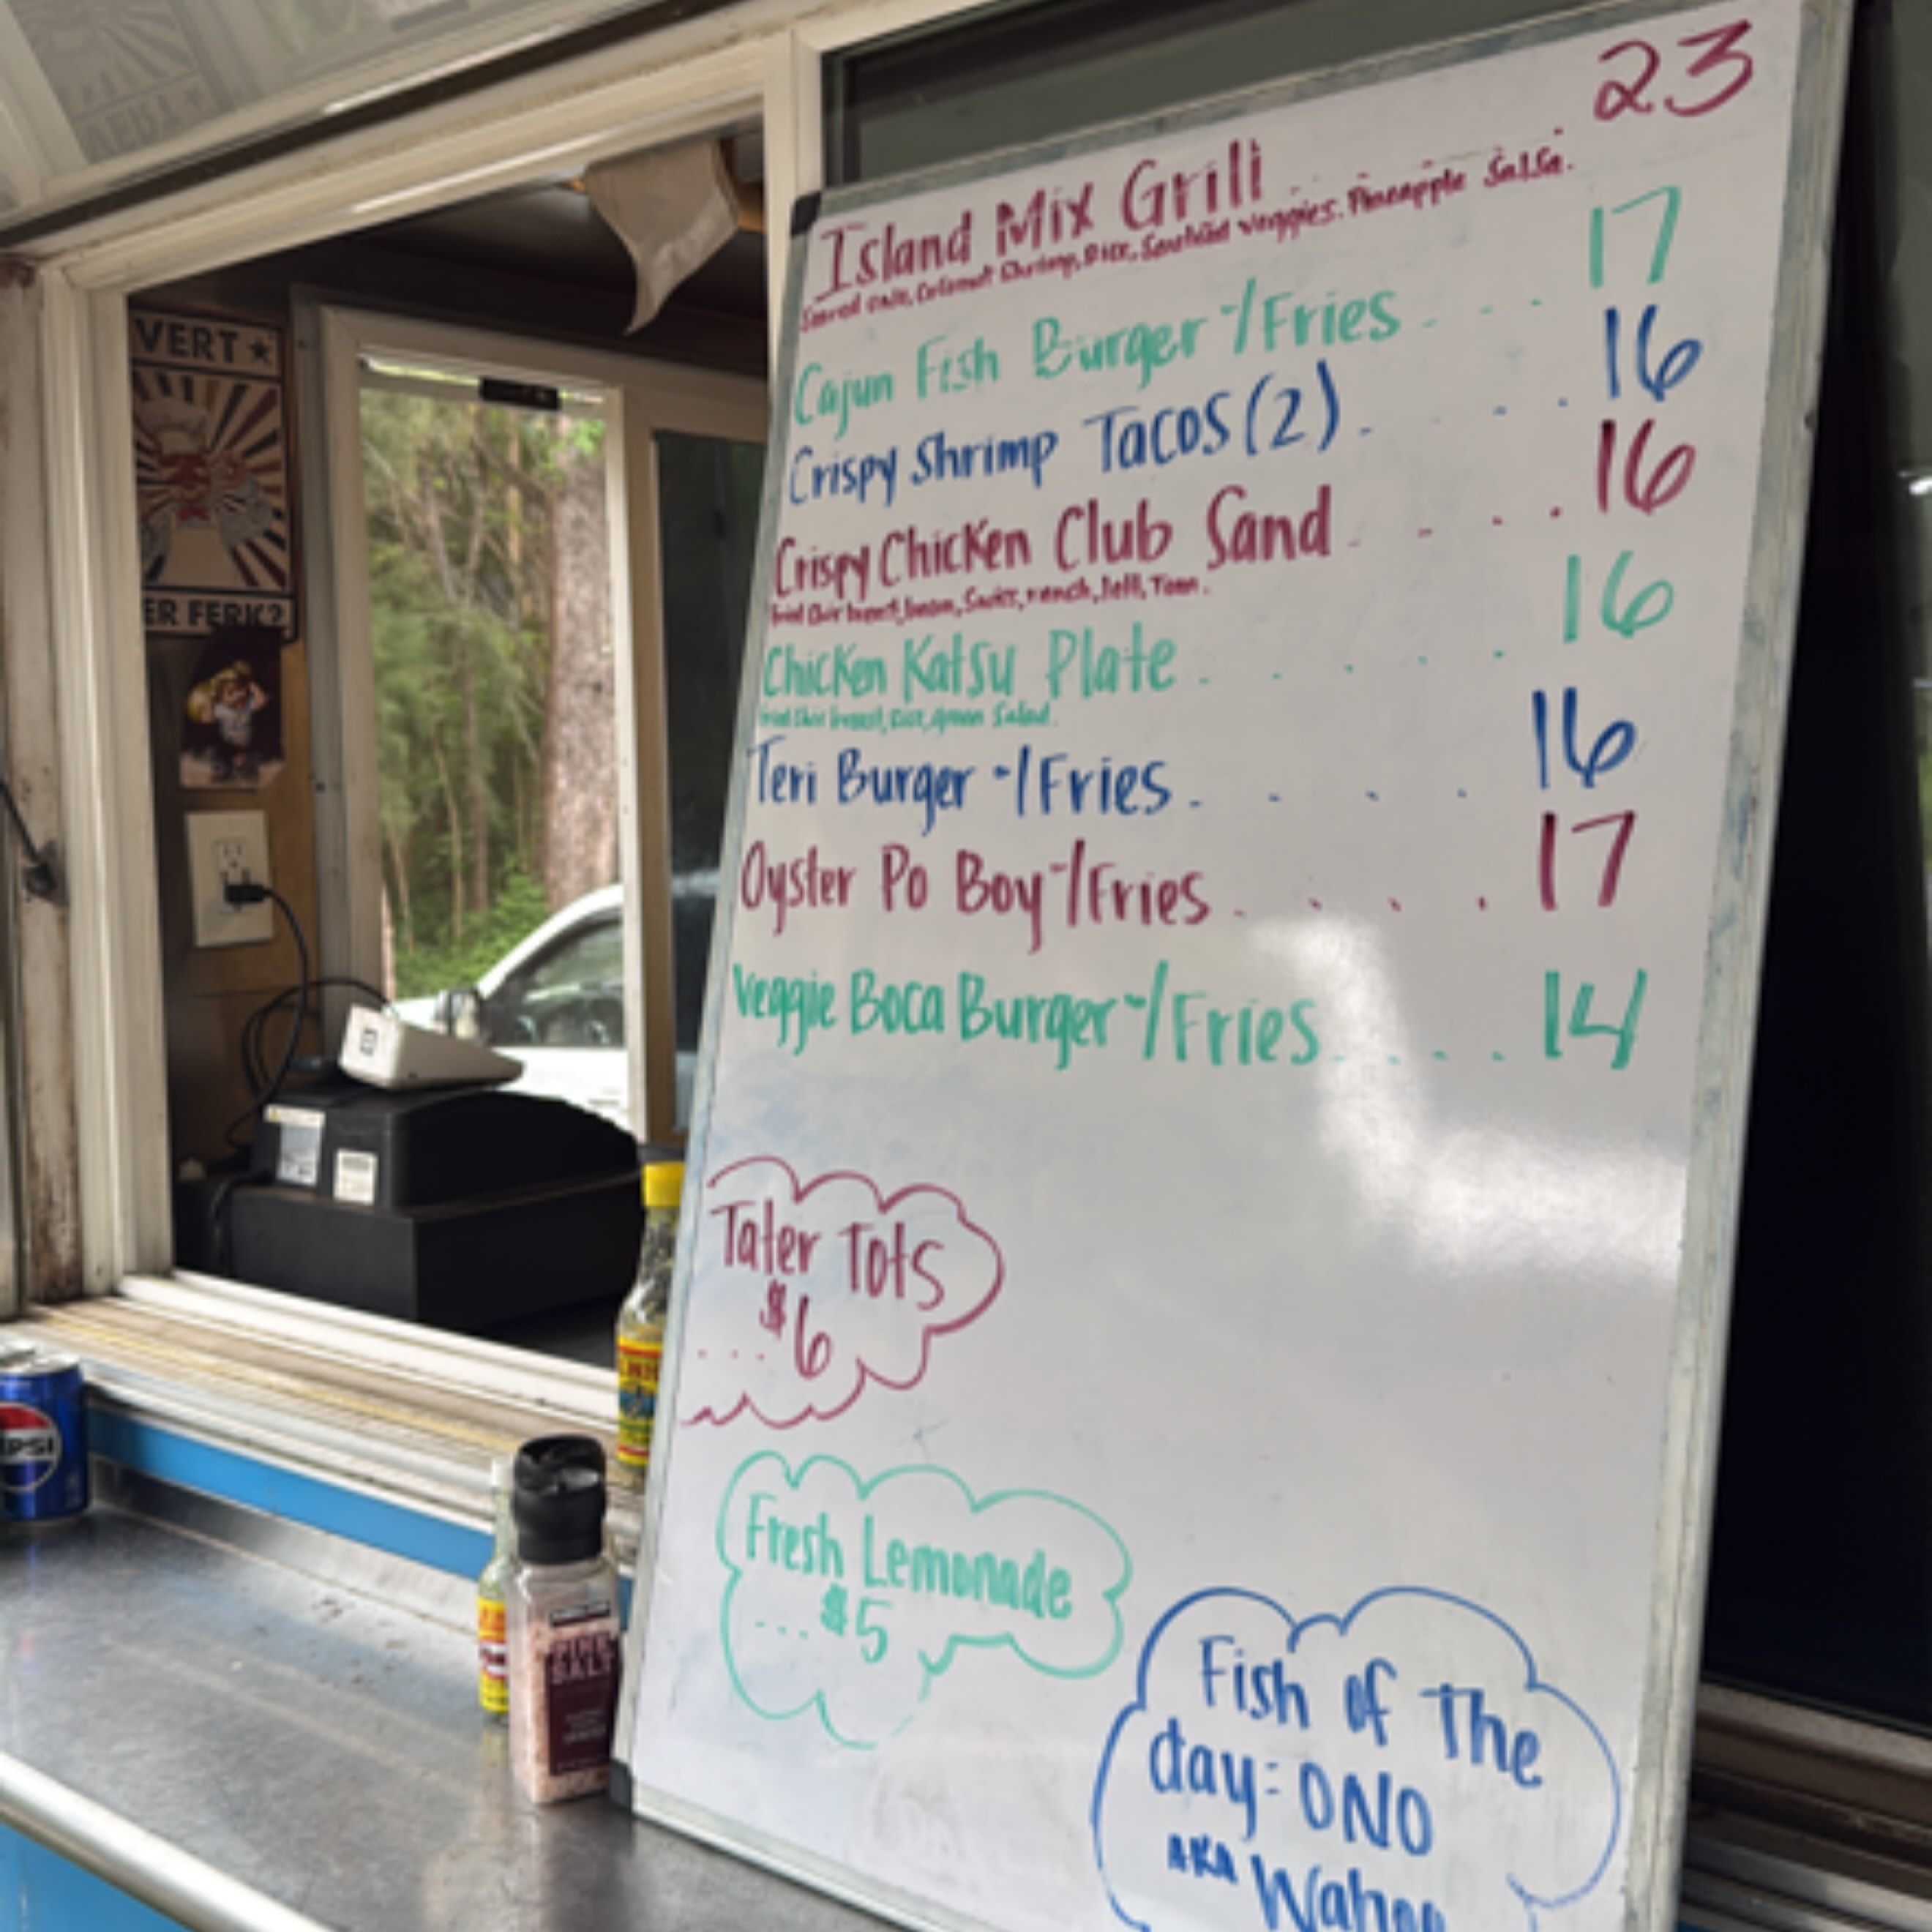 23
Island Mix Grill
Coconut Shrimp, Rice, Sautéed Veggies. Pineapple Salsa.
Cajun Fish Burger w/Fries . . . 17
Crispy Shrimp Tacos (2) . . . 16
Crispy Chicken Club Sand . . . . 16
Chicken Katsu Plate . . . . . 16
breast, Rice, green Salad.
Teri Burger w/Fries . . . . 16
Oyster Po Boy w/Fries . . . . 17
Veggie Boca Burger w/Fries . . . . 14
Tater Tots
... $6
Fresh Lemonade
... $5
Fish of The
day: ONO
AKA Wahoo
VERT
ER FERK?
PSI
PINK
SALT